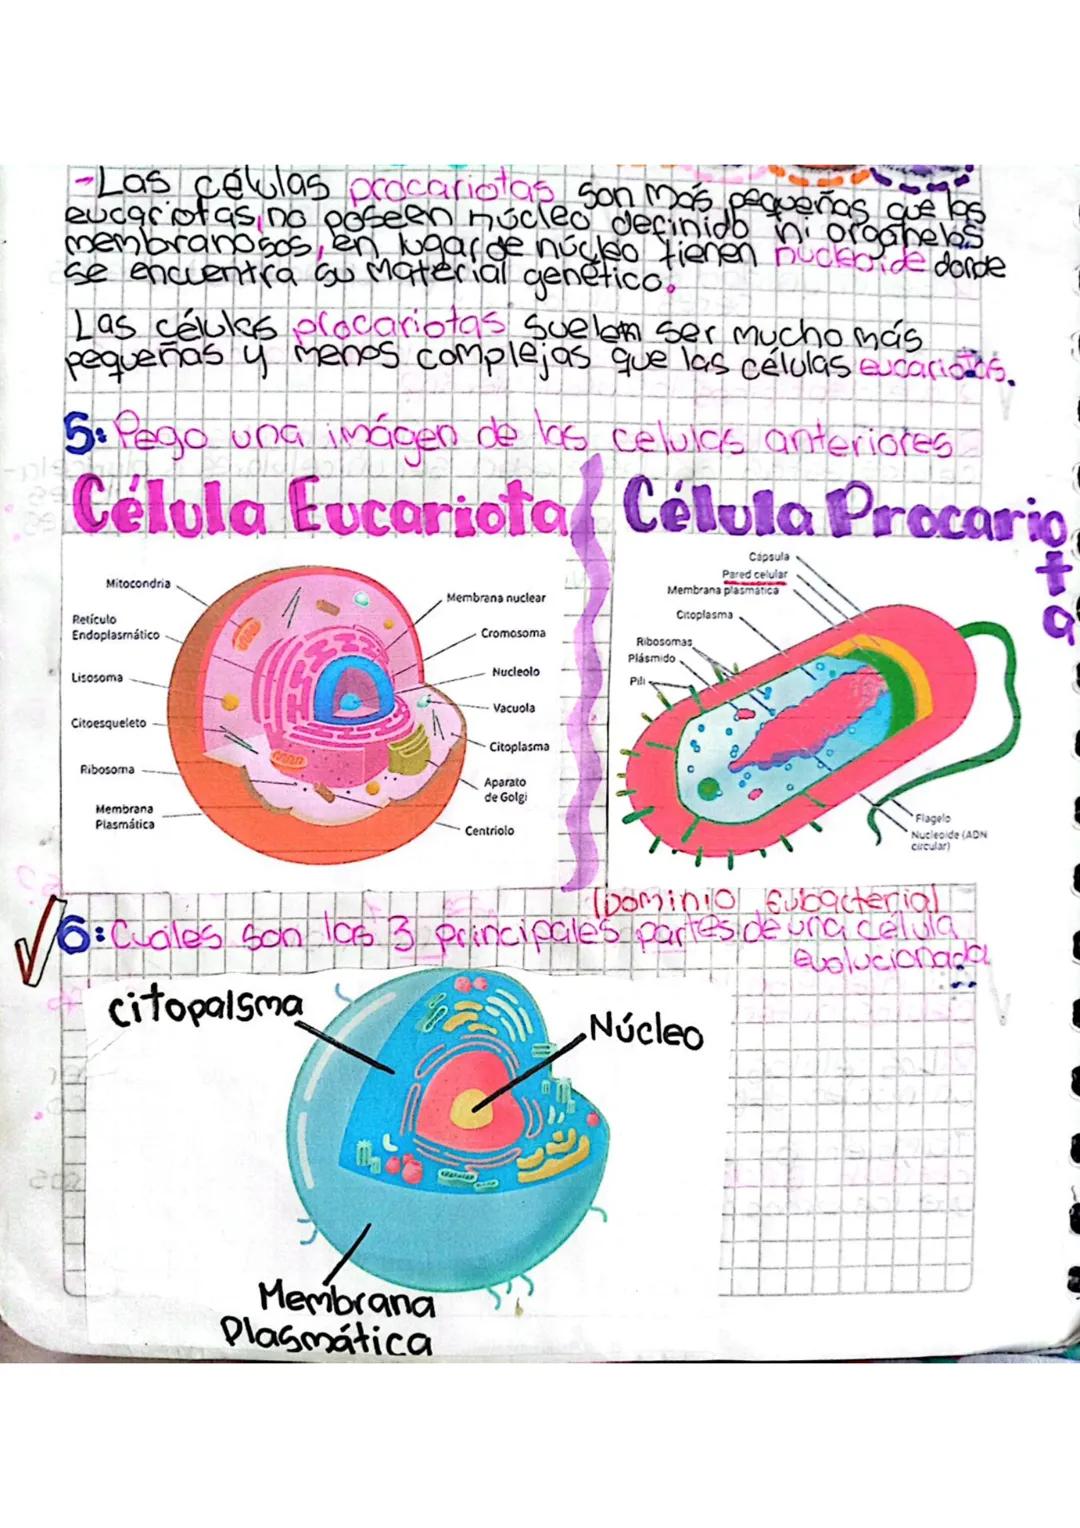 -Las células procariotas son más pequeñas que las
eucariotas, no poseen núcleo definido ni organelos
membranosos, en lugar de núcleo tienen nucleoide donde
se encuentra su material genético.
Las células procariotas suelen ser mucho más
pequeñas y menos complejas que las células eucariotas.
5: Pego una imágen de las celulas anteriores
Célula Eucariota
Célula Procariota
Mitocondria
Retículo
Endoplasmático
Lisosoma
Citoesqueleto
Ribosoma
Membrana
Plasmática
Membrana nuclear
Cromosoma
Nucleolo
Vacuola
Citoplasma
Aparato
de Golgi
Centriolo
Cápsula
Pared celular
Membrana plasmática
Citoplasma
Ribosomas
Plásmido
Pili
Flagelo
Nucleoide (ADN
circular)
(Dominio Eubacteria)
6: Cuáles son las 3 principales partes de una célula
evolucionada
citopalsma
Núcleo
Membrana
Plasmática